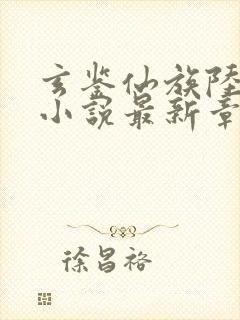 玄鉴仙族陸
小說最新章
徐昌裕